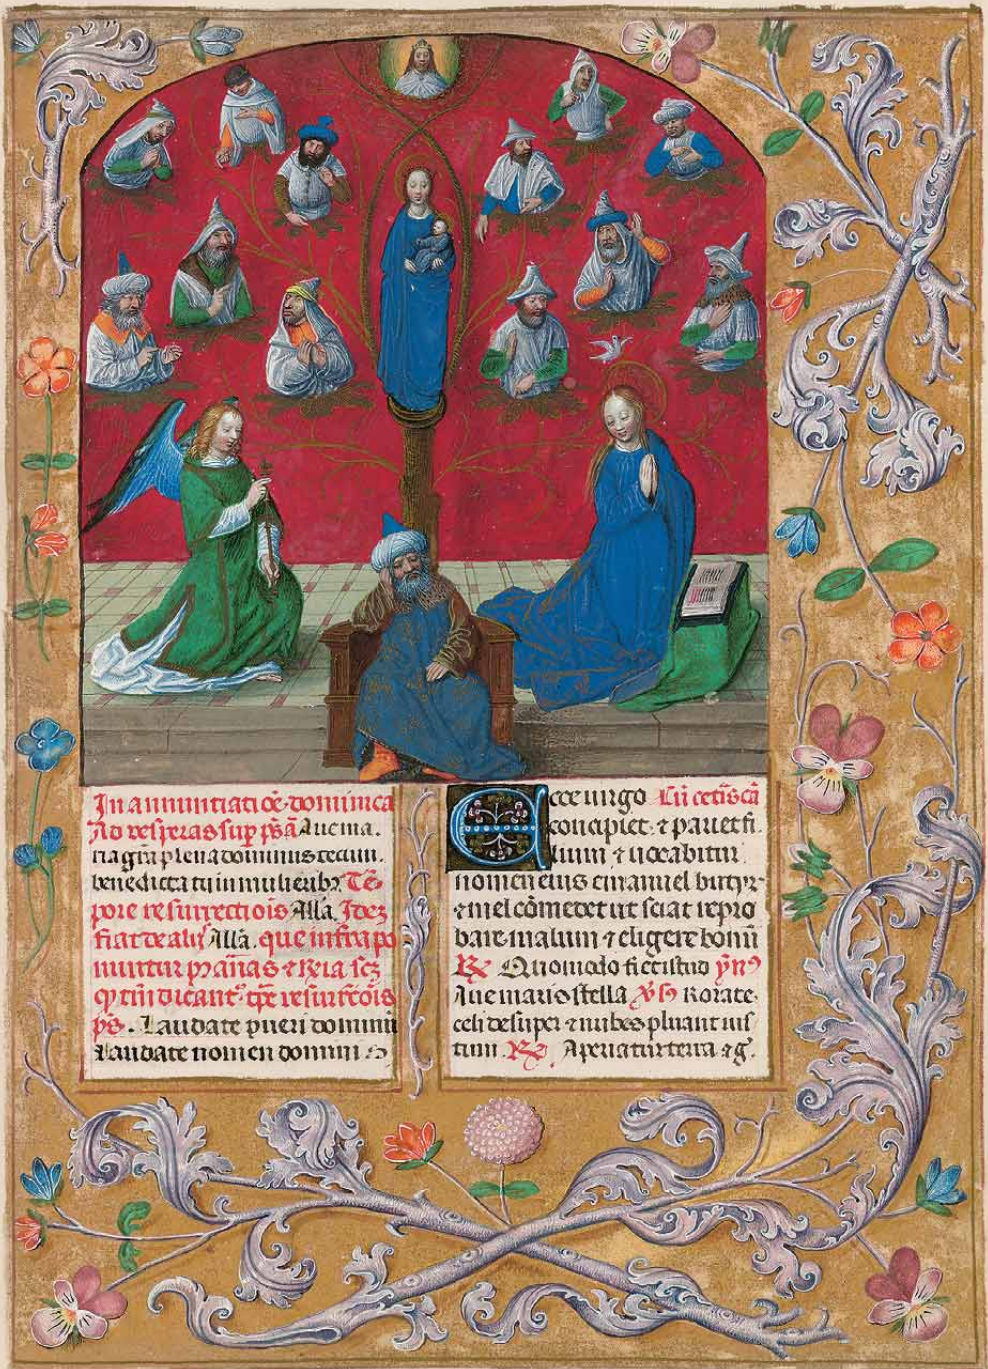 In annuntiatiōe dominica
Ad vesperas sup ps̄ā Aue ma.
ria gr̄a plena dominus tecum.
benedicta tu in mulieribꝫ Tē-
pore resurrectiois Alla. Idez
fiat de alijs Alla. que infra po
nuntur p an̄as
qn̄ dicant'. tp̄e resurrectōis
ps̄. Laudate pueri dominū
Laudate nomen domini
Ecce uirgo Cū cetis cā
concipiet ⁊ pariet fi.
lium ⁊ uocabitur
nomen eius emanuel butyr-
⁊ mel cōmedet ut sciat repro
bare malum ⁊ eligere bonū
R̄ Quomodo fiet istud ẏn9
Aue maris stella V̄s9 Rorate.
celi desuper ⁊ nubes pluant ius
tum. R̄ Aperiatur terra ⁊ g̃.